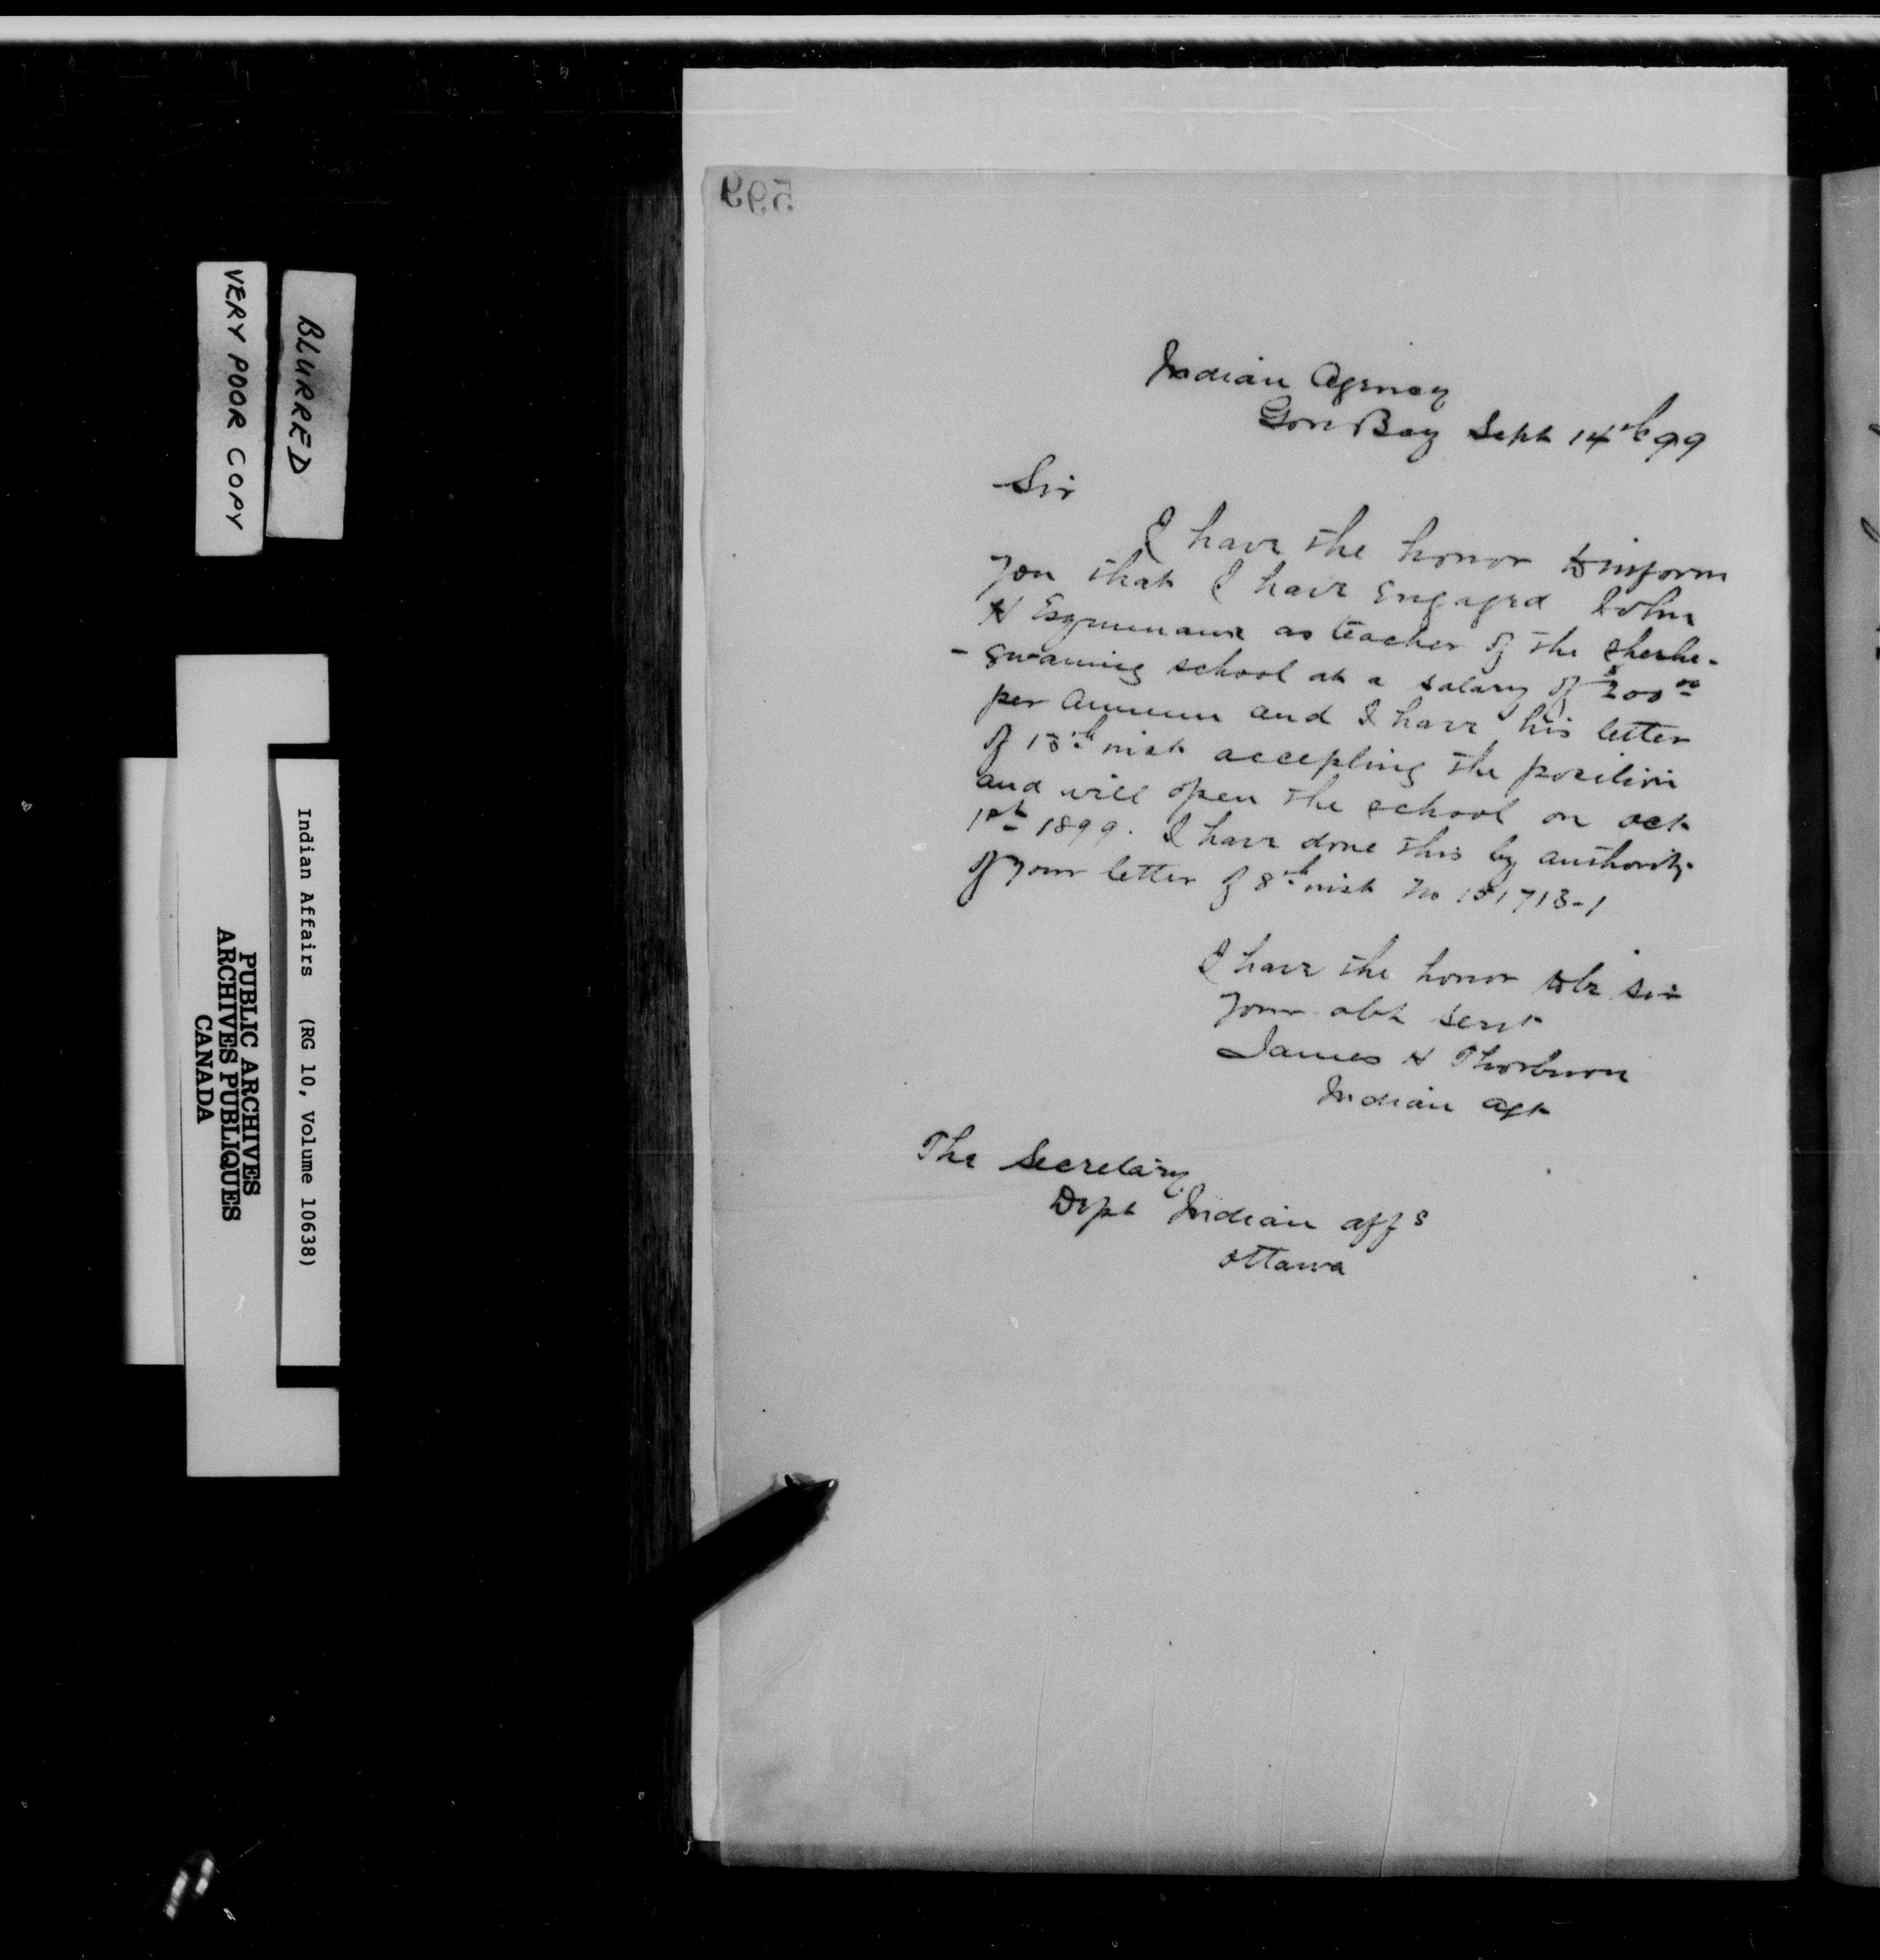 599
Indian Agency
Gore Bay Sept 14th 99
Sir
I have the honor to inform
you that I have engaged John
H Esquimaux as teacher of the Sheshe-
-gwaning school at a salary of $200 00
per annum and I have his letter
of 13th inst accepting the position
and will open the school on Oct
1st 1899. I have done this by authority
of your letter of 8th inst No 151713-1
I have the honor to be Sir
your obt servt
James H Thorburn
Indian Agt
The Secretary
Dept Indian Affs
Ottawa
BLURRED
VERY POOR COPY
Indian Affairs (RG 10, Volume 10638)
PUBLIC ARCHIVES
ARCHIVES PUBLIQUES
CANADA